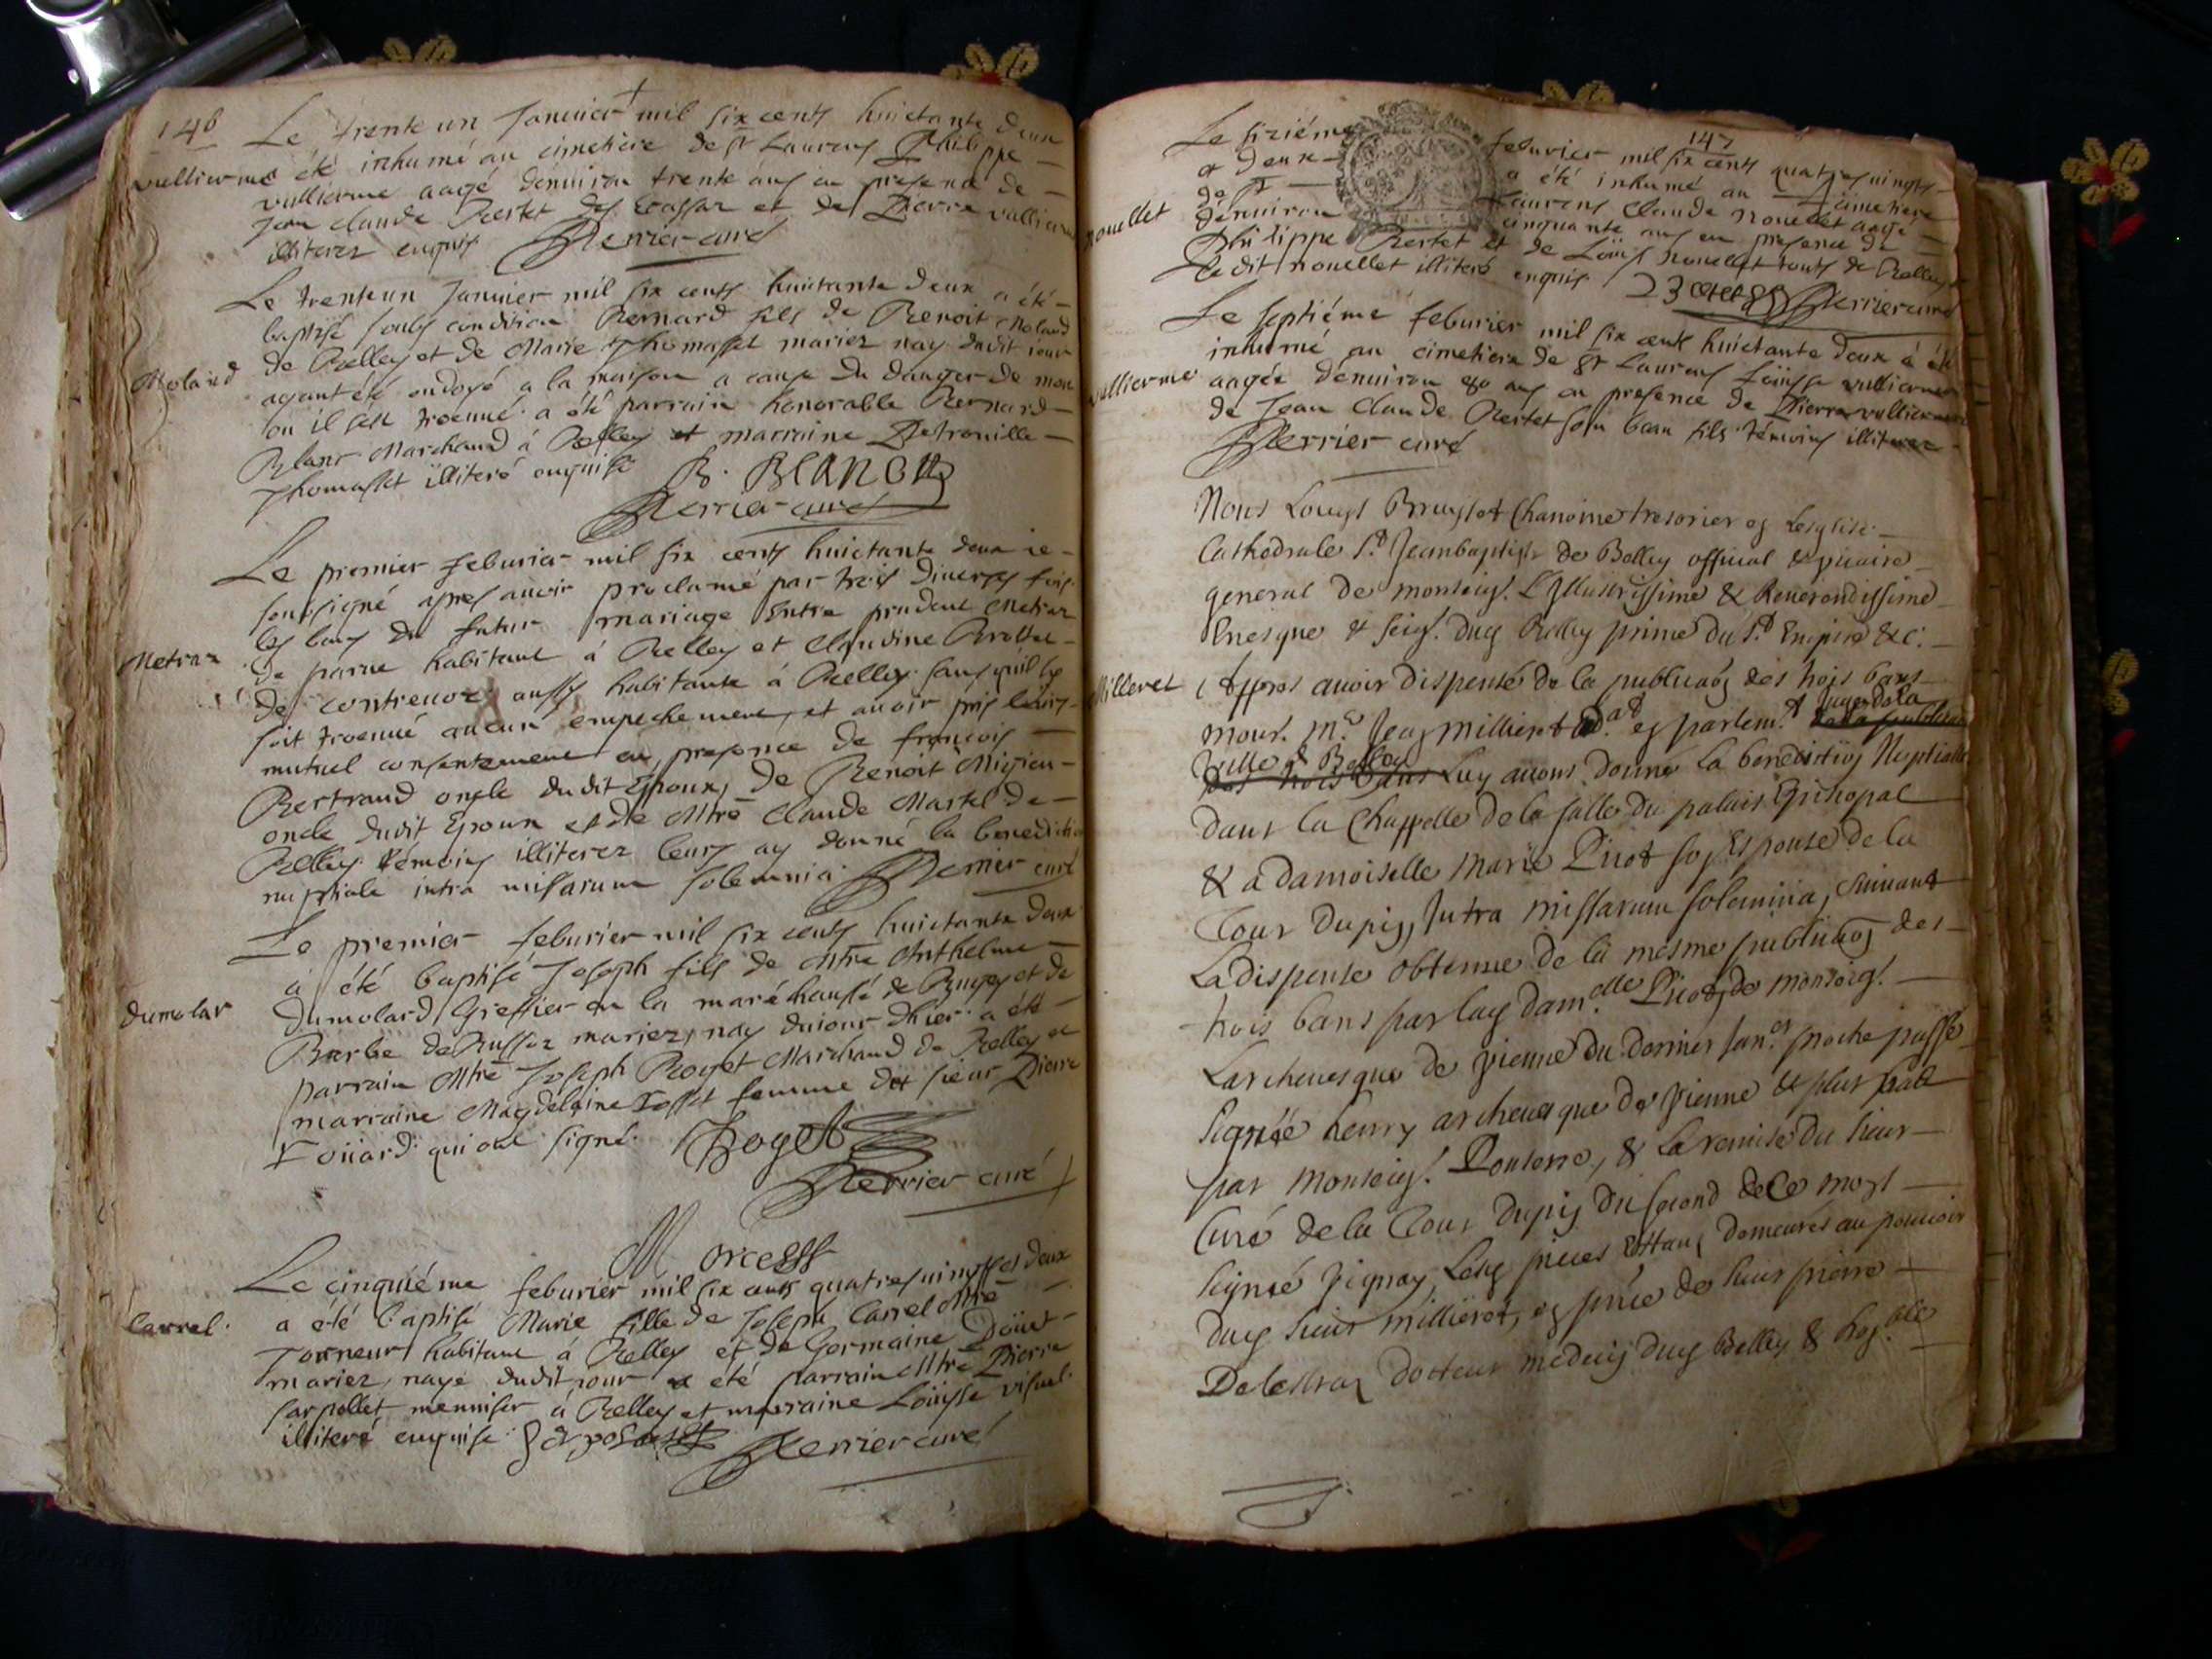 146
Le trente un Januier mil six cents huictante deux
vullierme
été inhumé au cimetiere de st Laurens Philippe
vullierme aagé denuiron trente ans en presence de
Jean claude Restet des Ecassaz et de Pierre vullierme
illiterez enquis Perrier curé
Le trenteun Januier mil six cents huictante deux a été
baptisé soubs condition Bernard fils de Benoit Molard
Molard
de Belley et de Marie Thomasset mariez nay dudit jour
ayant été ondoyé a la maison a cause du danger de mort
ou il sest troeuué a été parrain honorable Bernard
Blanc Marchand à Belley et marraine Petronille
Thomasset illiteré enquise B. BLANC
Perrier curé
Le premier feburier mil six cents huictante deux ie
soussigné apres auoir proclamé par trois diuerses fois
les bans du futur mariage entre prudent Metraz
Metraz
de parue habitant à Belley et Claudine Brottet
de contreuoz aussy habitante à Belley sans quil se
soit troeuué aucun empechement, et auoir pris leurs
mutuel consentement en presence de francois
Bertrand oncle dudit Epoux, de Benoit Migieu
oncle dudit Epoux et de Mtre Claude Martel de
Belley témoins illiterez leurs ay donné la benediction
nuptiale intra missarum solemnia Perrier curé
Le premier feburier mil six cents huictante deux
à été baptisé Joseph fils de Mtre Anthelme
dumolar
Dumolard Greffier en la maréchaussé de Bugey et de
Barbe de Russoz mariez, nay du jour d'hier a été
parrain Mtre Joseph Roget Marchand de Belley et
marraine Magdelaine Tosset femme de sieur Pierre
Foüard qui ont signé. Roget
Perrier curé
Le cinquiéme feburier mil six cents quatre vingtz deux
Carrel.
a été baptisé Marie fille de Joseph Carrel Mtre
Torneur habitant à Belley et de Germaine Doüet
mariez, naye dudit jour a été parrain Mtre Pierre
Sarpollet menuiser à Belley et marraine Loüyse visuel
illiteré enquise Perrier curé
147
Le siziéme feburier mil six cents quatre uingts
et deux a été inhumé au cimetiere
de St Laurens Claude nouellet aagé
nouellet
denuiron cinquante ans en presence de
Philippe Restet et de Loüis nouellet touts de Belley
Ledit nouellet illiteré enquis Perrier curé
Le septiéme feburier mil six cents huictante deux à été
inhumé au cimetiere de st Laurens Loüyse vullierme
vullierme
aagée denuiron 80 ans en presence de Pierre vullierme
de Jean Claude Restet son beau fils témoins illiterez
Perrier curé
Nous Louys Bruyset Chanoine tresorier en Lesglise
Cathedrale St Jeanbaptiste de Belley official & vicaire
general de monseigr. L'Illustrissime & Reuerendissime
Euesque & seigr. dud Belley prince du St Empire &c.
Millieret
Appres auoir dispensé de la publicaon des trois bans
monsr. me Jean millieret ad.at en parlemt. juge de la
ville de Belley Luy auons donné La benediction Nuptialle
dans la Chappelle de la salle du palais Episcopal
& a damoiselle Marie Picot son Espouse de la
Tour dupin, Intra missarum solemnia, suiuant
La dispense obtenue de la mesme publicaon des
trois bans par lad damelle Picot, de monseigr.
Larcheuesque de vienne du dernier Janer proche passé
Signée henry archeuesque de vienne & plus bas
par monseigr. Ponserre, & La remise du sieur
Curé de la Tour dupin du second de Ce moys
signée vignay, Lesd pieces Estans demeurés au pouuoir
dud sieur millieret, en pnce de sieur pierre
Delestraz docteur medecin dud Belley & honble